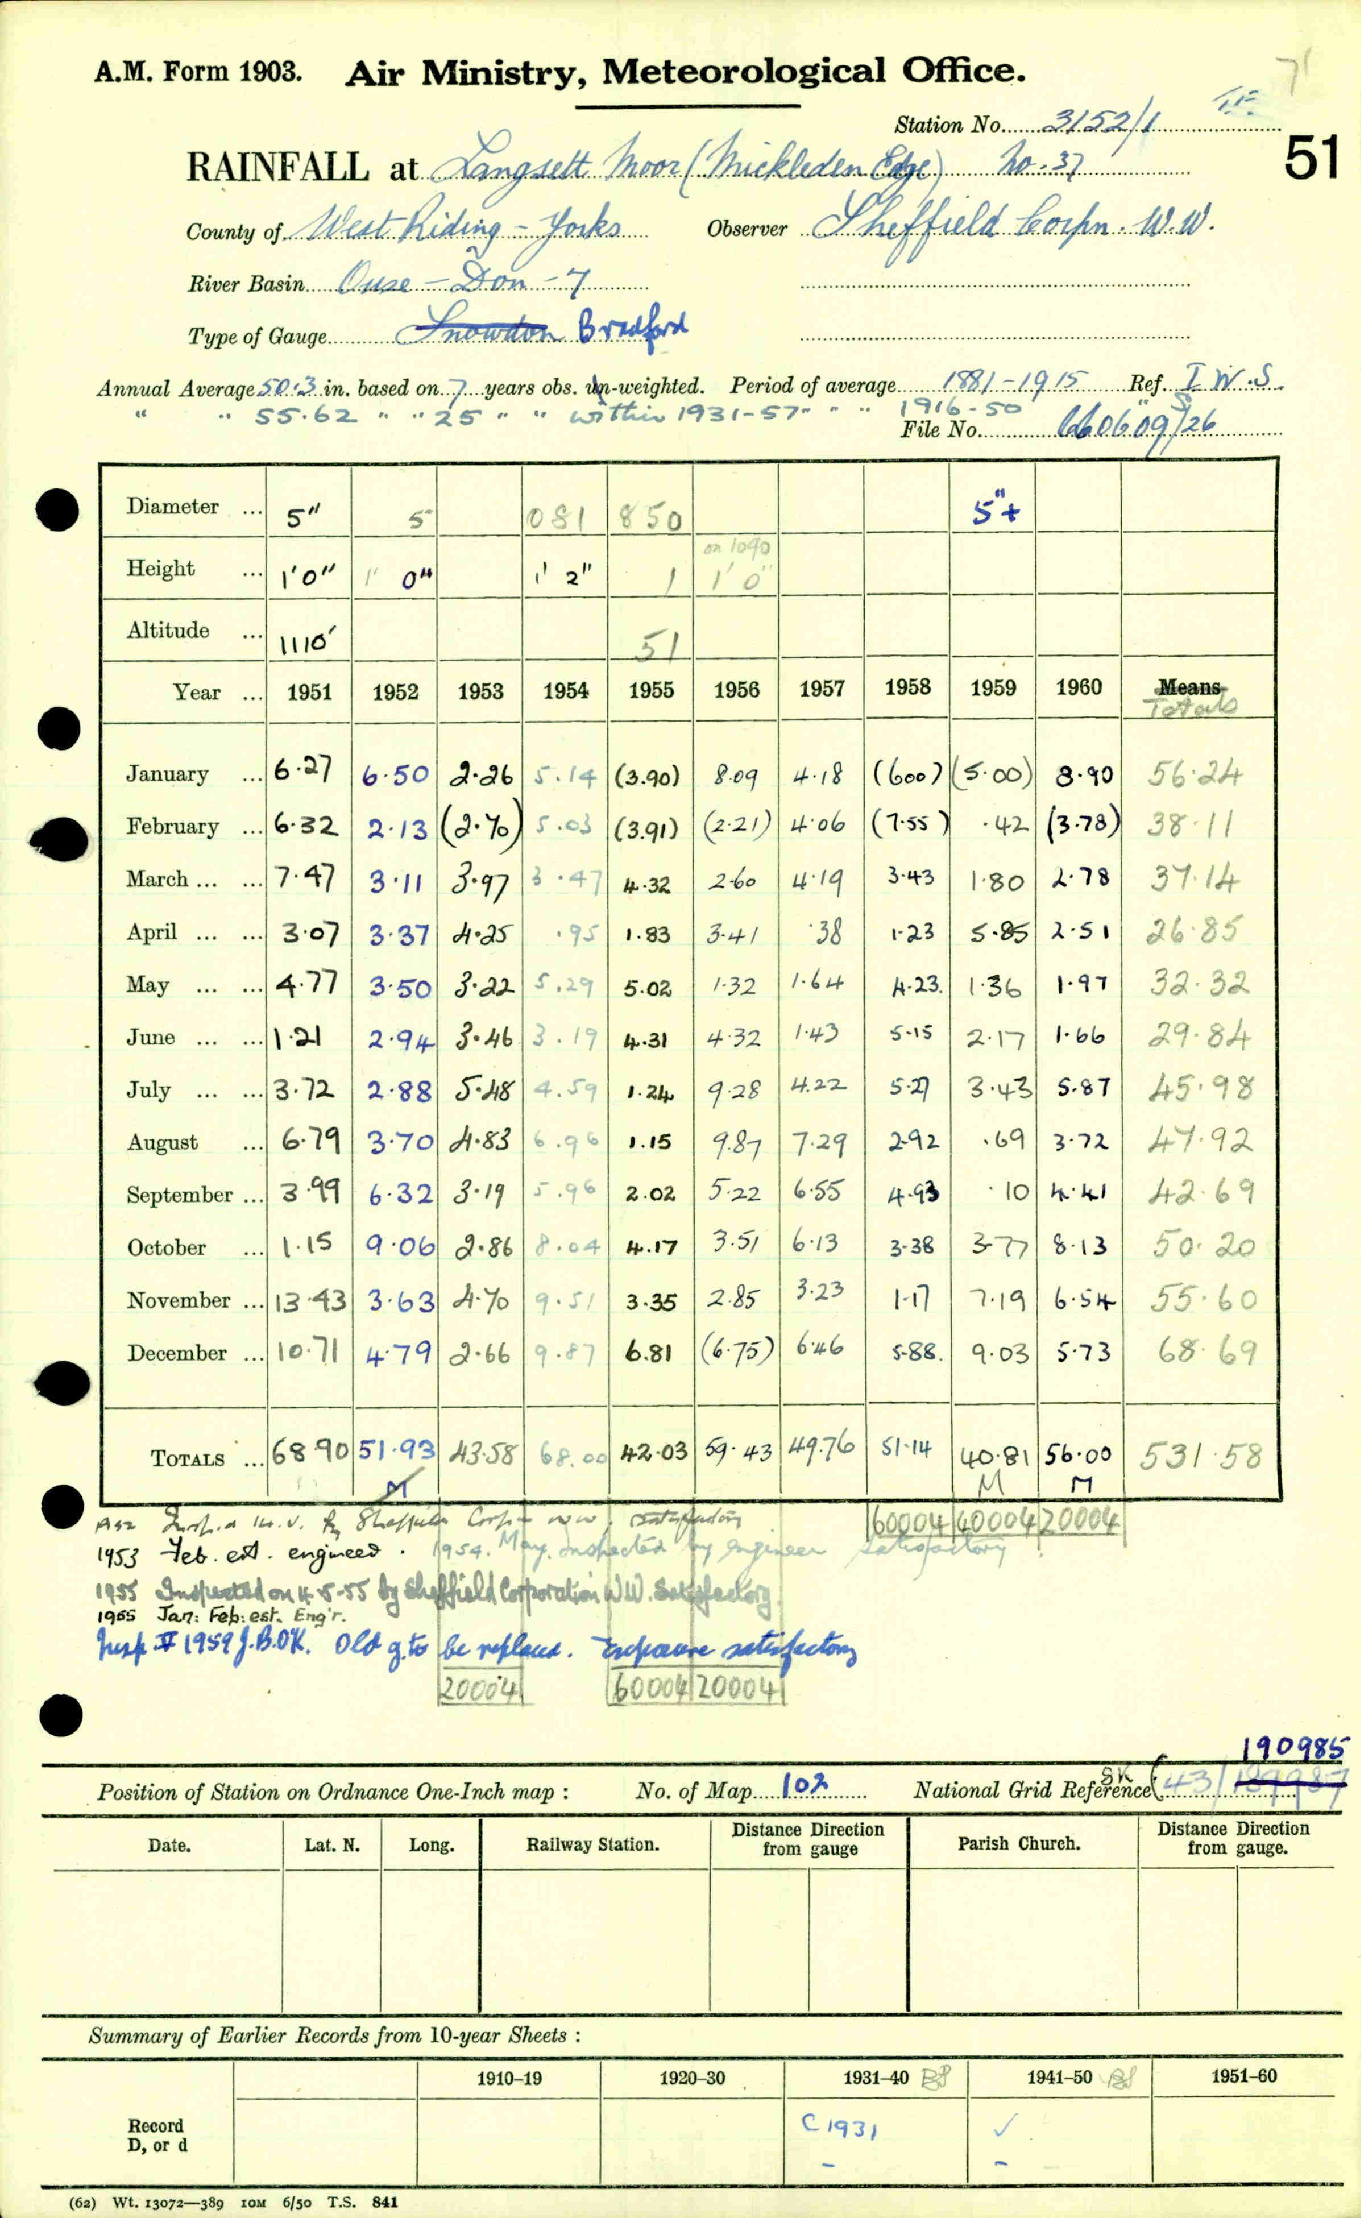 71
A.M. Form 1903. Air Ministry, Meteorological Office.
Station No. 3152/1
RAINFALL at Langsett Moor (Mickleden Edge) No. 37 51
County of West Riding - Yorks Observer Sheffield Corpn. W.W.
River Basin Ouse - Don - 7
Type of Gauge Snowdon Bradford
Annual Average 50.3 in. based on 7 years obs. un-weighted. Period of average 1881-1915 Ref. I.W.S.
" " 55.62 " " 25 " " within 1931-57 " " 1916-50
File No. 660609/26
Diameter ... 5" 5" 081 850 5"+
on 1090
Height ... 1'0" 1' 0" 1' 2" 1 1' 0"
Altitude ... 1110' 51
Year ... 1951 1952 1953 1954 1955 1956 1957 1958 1959 1960 Means
Totals
January ... 6.27 6.50 2.26 5.14 (3.90) 8.09 4.18 (6.00) (5.00) 8.90 56.24
February ... 6.32 2.13 (2.70) 5.03 (3.91) (2.21) 4.06 (7.55) .42 (3.78) 38.11
March ... ... 7.47 3.11 3.97 3.47 4.32 2.60 4.19 3.43 1.80 2.78 37.14
April ... ... 3.07 3.37 4.25 .95 1.83 3.41 .38 1.23 5.85 2.51 26.85
May ... ... 4.77 3.50 3.22 5.29 5.02 1.32 1.64 4.23 1.36 1.97 32.32
June ... ... 1.21 2.94 3.46 3.19 4.31 4.32 1.43 5.15 2.17 1.66 29.84
July ... ... 3.72 2.88 5.48 4.59 1.24 9.28 4.22 5.27 3.43 5.87 45.98
August ... 6.79 3.70 4.83 6.96 1.15 9.87 7.29 2.92 .69 3.72 47.92
September ... 3.99 6.32 3.19 5.96 2.02 5.22 6.55 4.93 .10 4.41 42.69
October ... 1.15 9.06 2.86 8.04 4.17 3.51 6.13 3.38 3.77 8.13 50.20
November ... 13.43 3.63 4.70 9.51 3.35 2.85 3.23 1.17 7.19 6.54 55.60
December ... 10.71 4.79 2.66 9.87 6.81 (6.75) 6.46 5.88 9.03 5.73 68.69
TOTALS ... 68.90 51.93 43.58 68.00 42.03 59.43 49.76 51.14 40.81 56.00 531.58
M M M
1952 Insp.d by Sheffield Corpn W.W. satisfactory 60004 40004 20004
1953 Feb. est. engineer. 1954. May. inspected by engineer satisfactory
1955 Inspected on 4-5-55 by Sheffield Corporation W.W. Satisfactory.
1955 Jan: Feb: est. Engr.
Insp II 1959 J.B.O'K. Old g. to be replaced. Exposure satisfactory
20004 60004 20004
190985
Position of Station on Ordnance One-Inch map : No. of Map 102 National Grid Reference SK (43/189987
Date. Lat. N. Long. Railway Station. Distance Direction from gauge Parish Church. Distance Direction from gauge.
Summary of Earlier Records from 10-year Sheets :
1910–19 1920–30 1931–40 1941–50 1951–60
Record C 1931 ✓
D, or d - -
(62) Wt. 13072—389 10M 6/50 T.S. 841